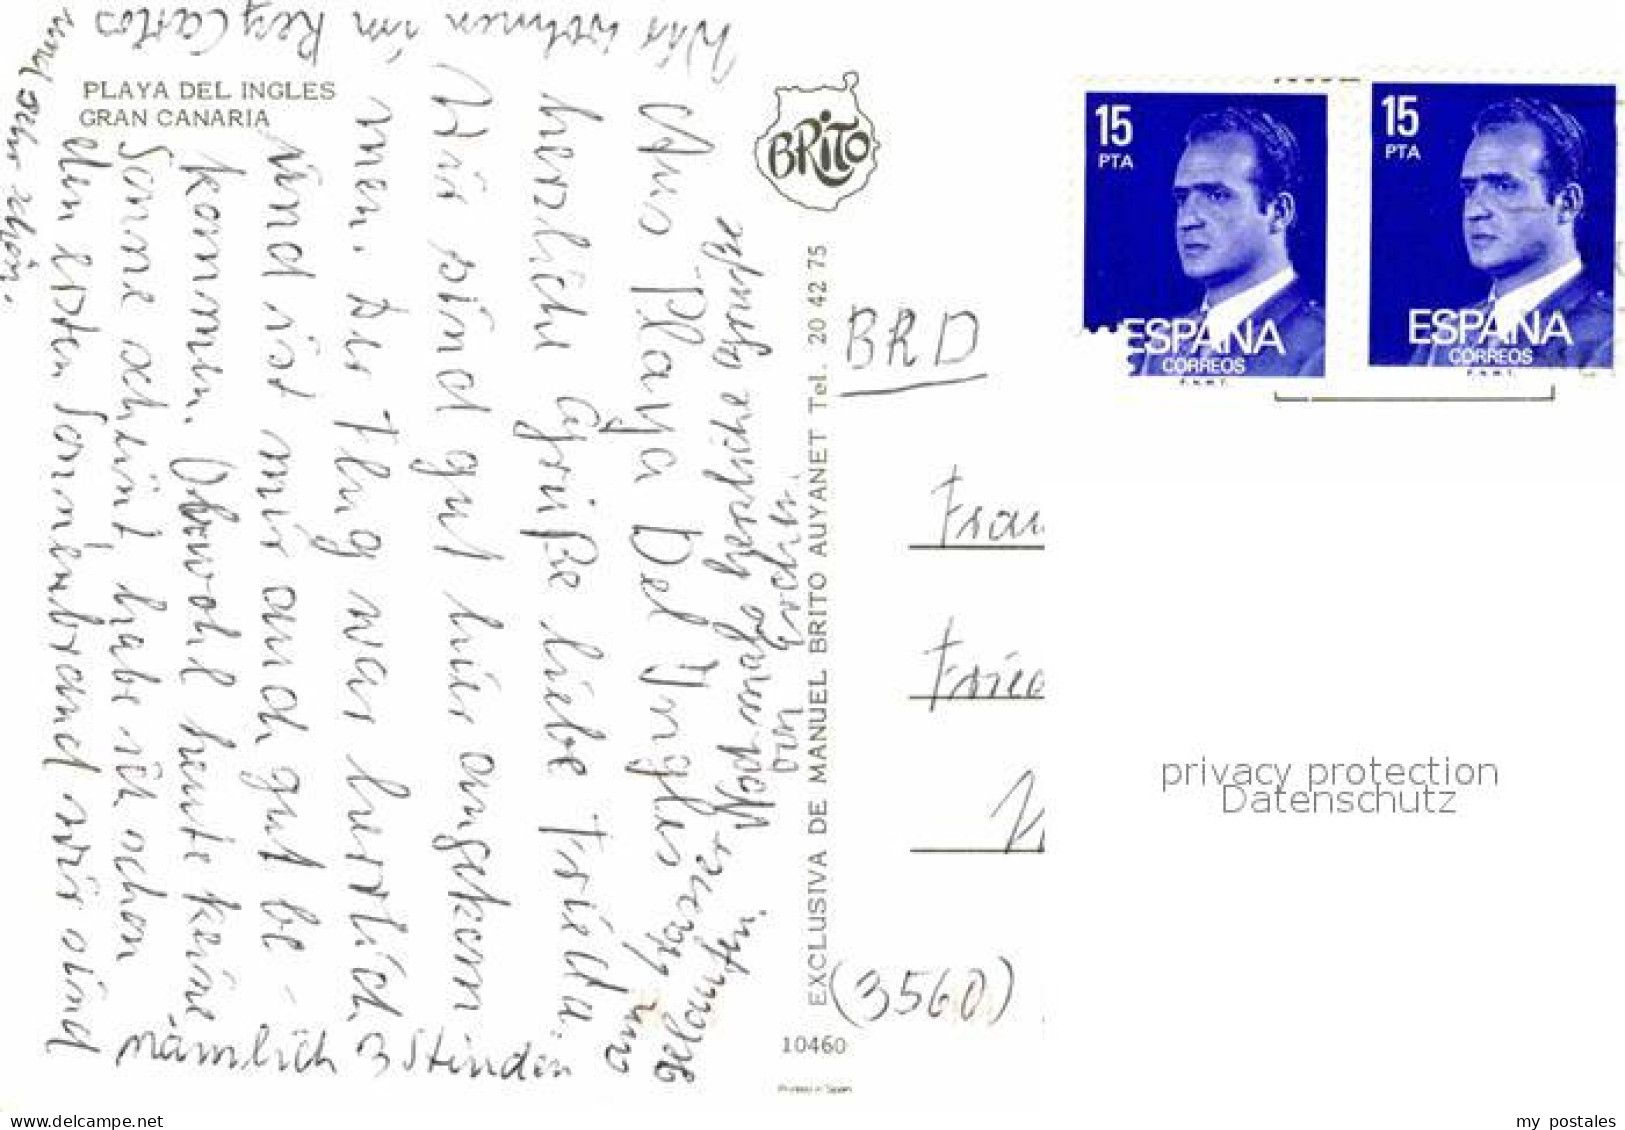 PLAYA DEL INGLES
GRAN CANARIA
BRITO
Aus Playa Del Ingles
herzliche Grüße liebe Frieda.
Wir sind gut hier angekom
men. Der Flug war herrlich
und ist mir auch gut be-
kommen. Obwohl heute keine
Sonne scheint habe ich schon
den ersten Sonnenbrand wir sind
nämlich 3 Stunden
am Wasser
gelaufen.
Nochmals herzliche Grüße
von
Wir wohnen im Rey Carlos
und sehr schön.
EXCLUSIVA DE MANUEL BRITO AUYANET Tel. 20 42 75
10460
Printed in Spain
BRD
Frau
Fried
(3560)
15
PTA
ESPAÑA
CORREOS
F.N.M.T.
15
PTA
ESPAÑA
CORREOS
F.N.M.T.
privacy protection
Datenschutz
www.delcampe.net
my_postales